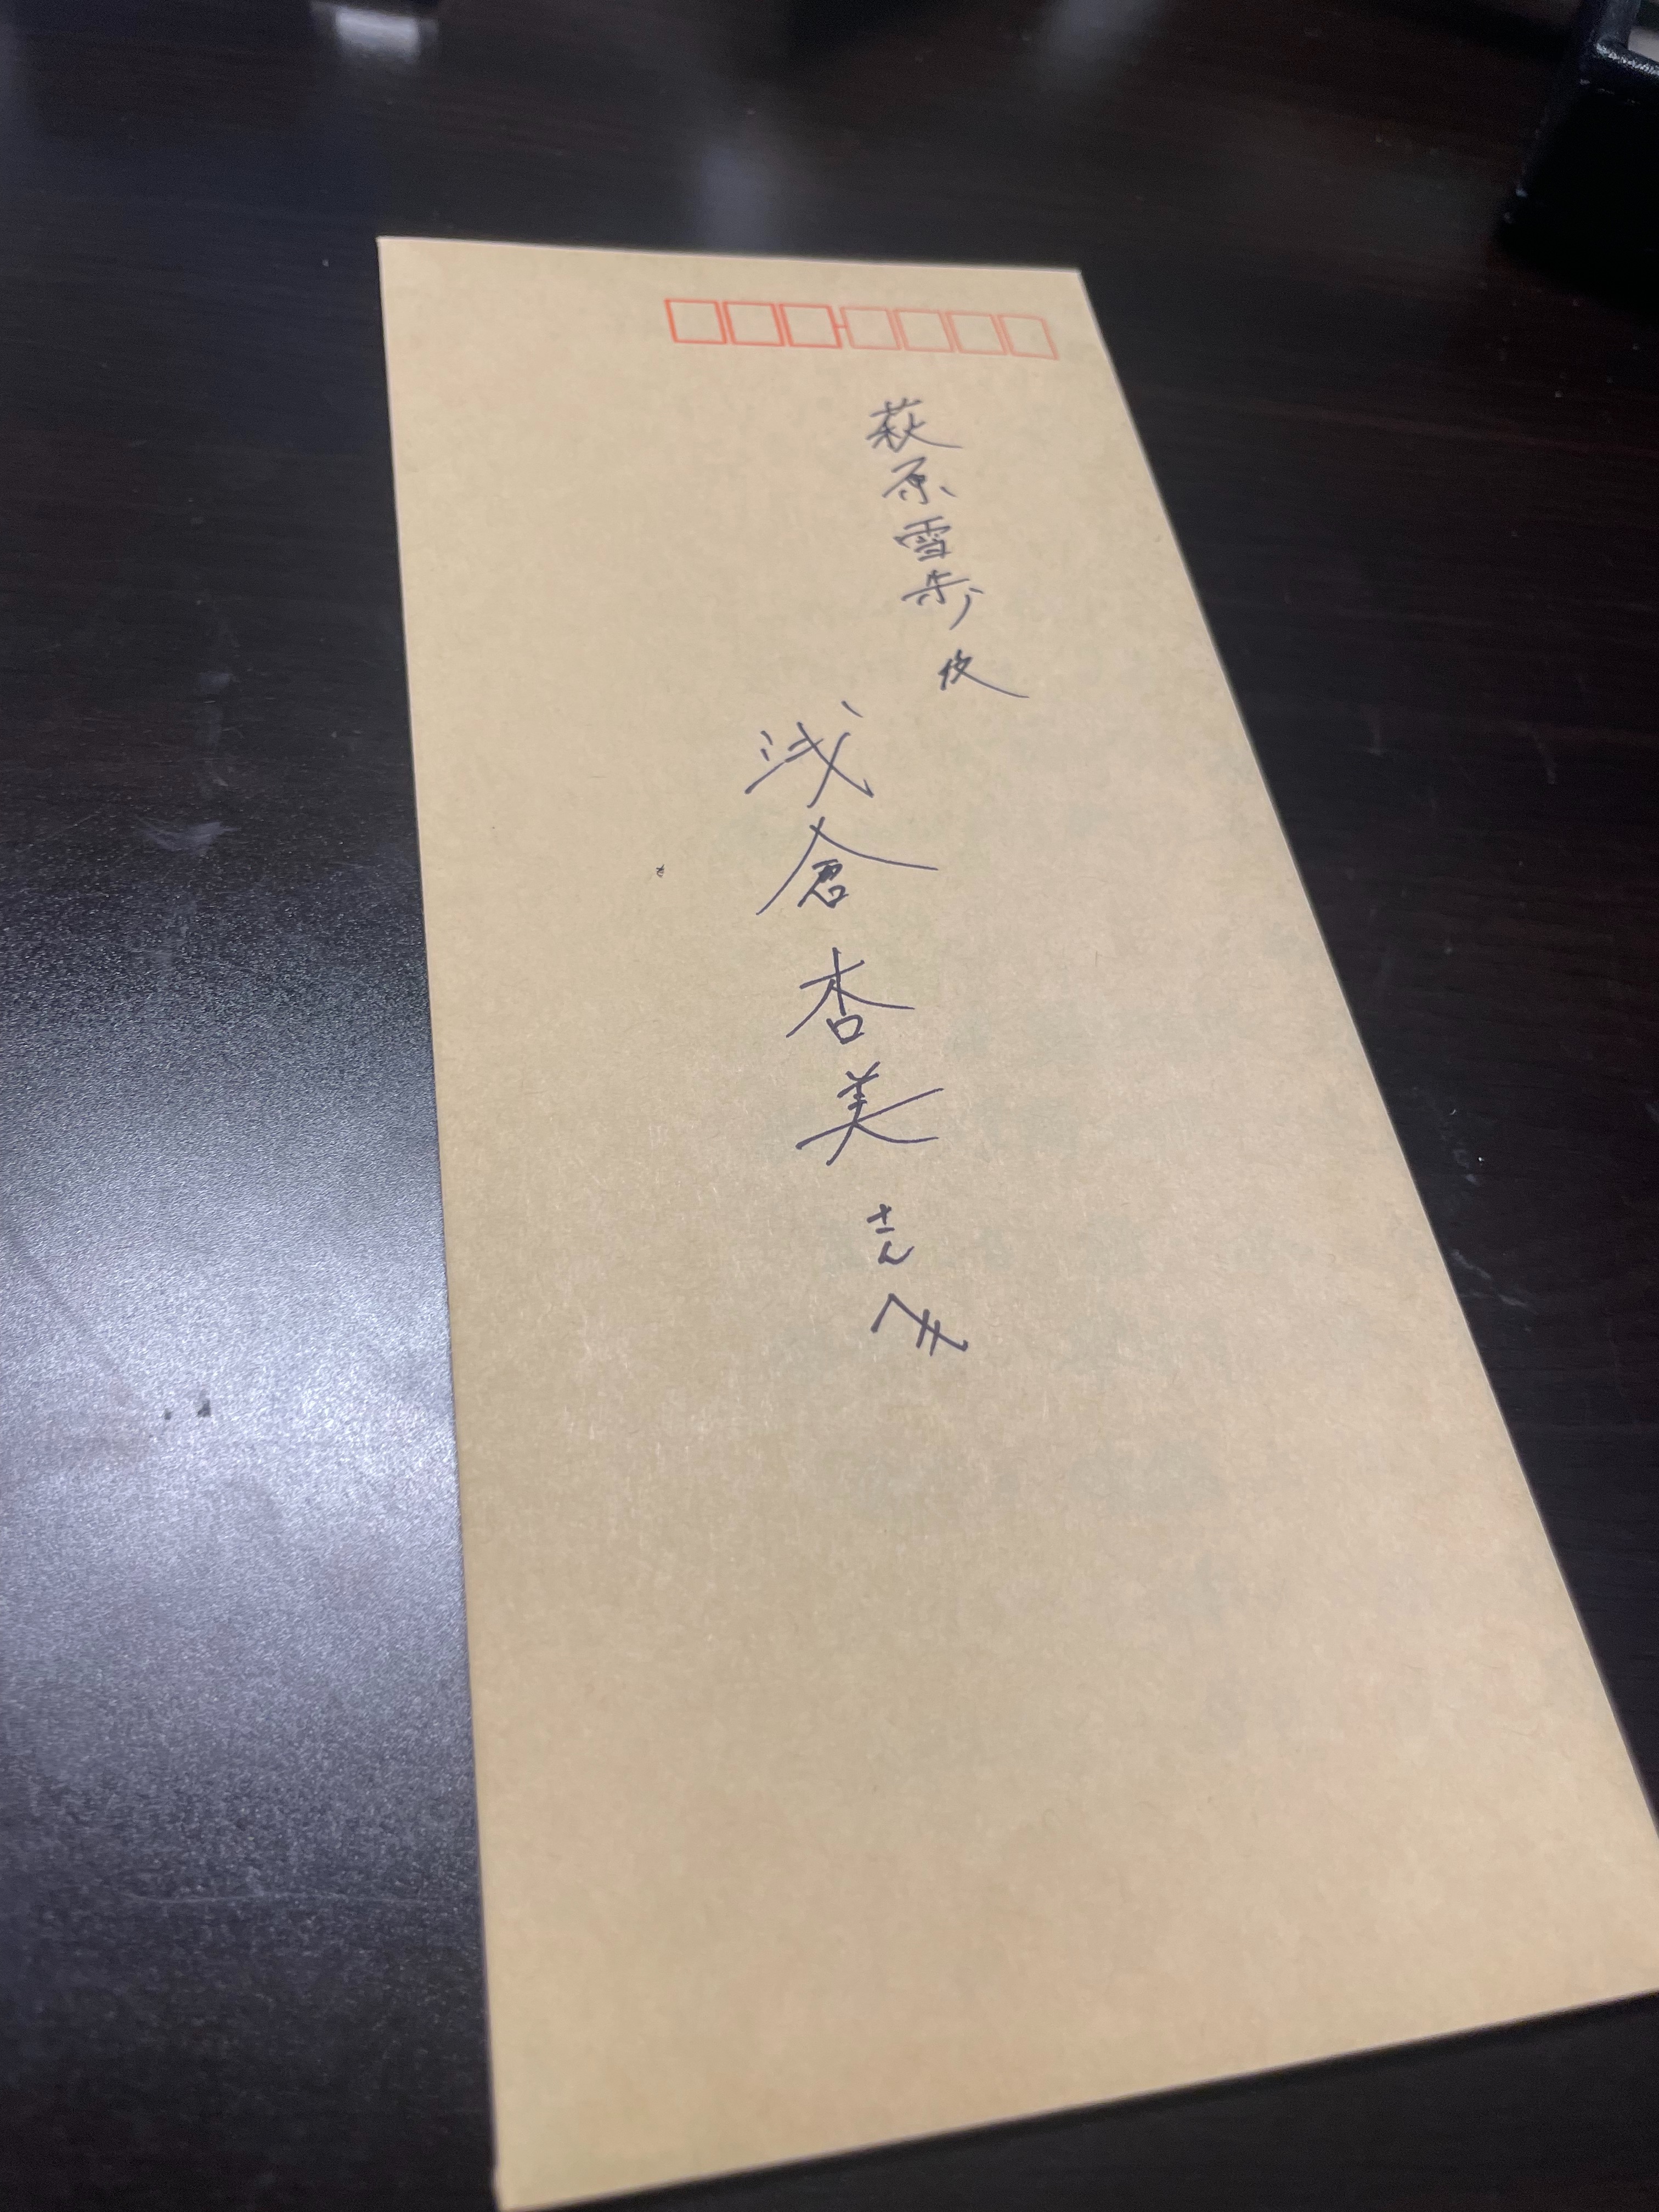 萩原雪歩 役
浅倉杏美さんへ